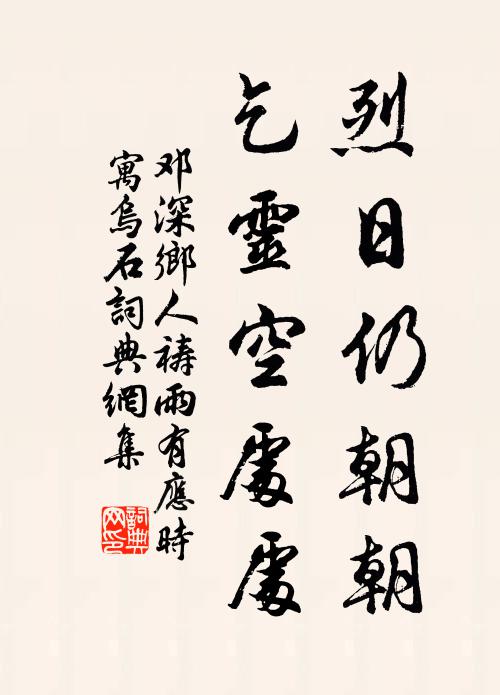 烈日仍朝朝
乞靈空處處
邓深鄉人禱雨有應時
寓烏石詞典網集
詞典
网印